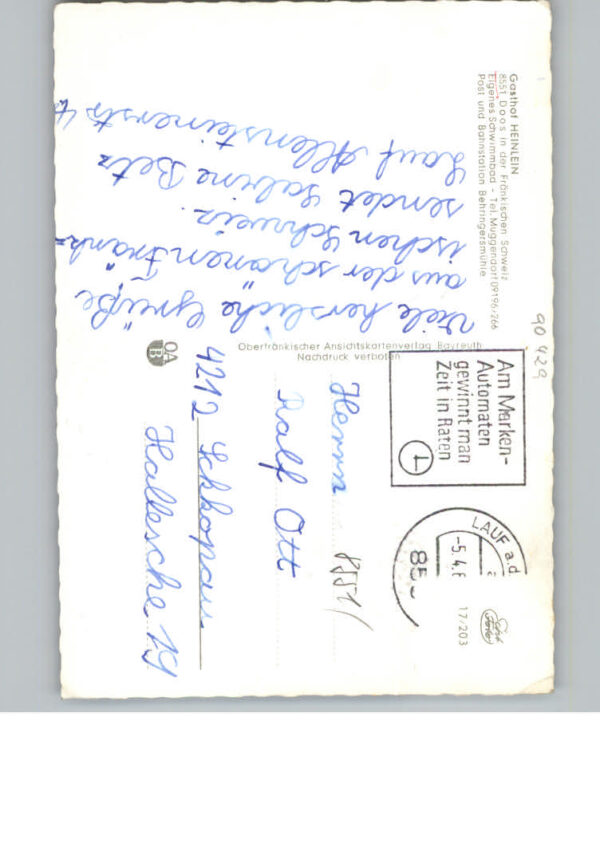 Gasthof HEINLEIN
8551 Doos in der Fränkischen Schweiz
Eigenes Schwimmbad - Tel. Muggendorf 09196/266
Post und Bahnstation Behringersmühle
Viele herzliche Grüße
aus der schönen Fränk=
ischen Schweiz.
sendet Sabine Betz
Lauf Allensteinerstr
Oberfränkischer Ansichtskartenverlag Bayreuth
Nachdruck verboten
OA
B
90 429
Am Marken-
Automaten
gewinnt man
Zeit in Raten
LAUF a.d.
-5.4.6
85
17/203
Herrn
8551/
Ralf Ott
4212 Schkopau
Hallesche 19